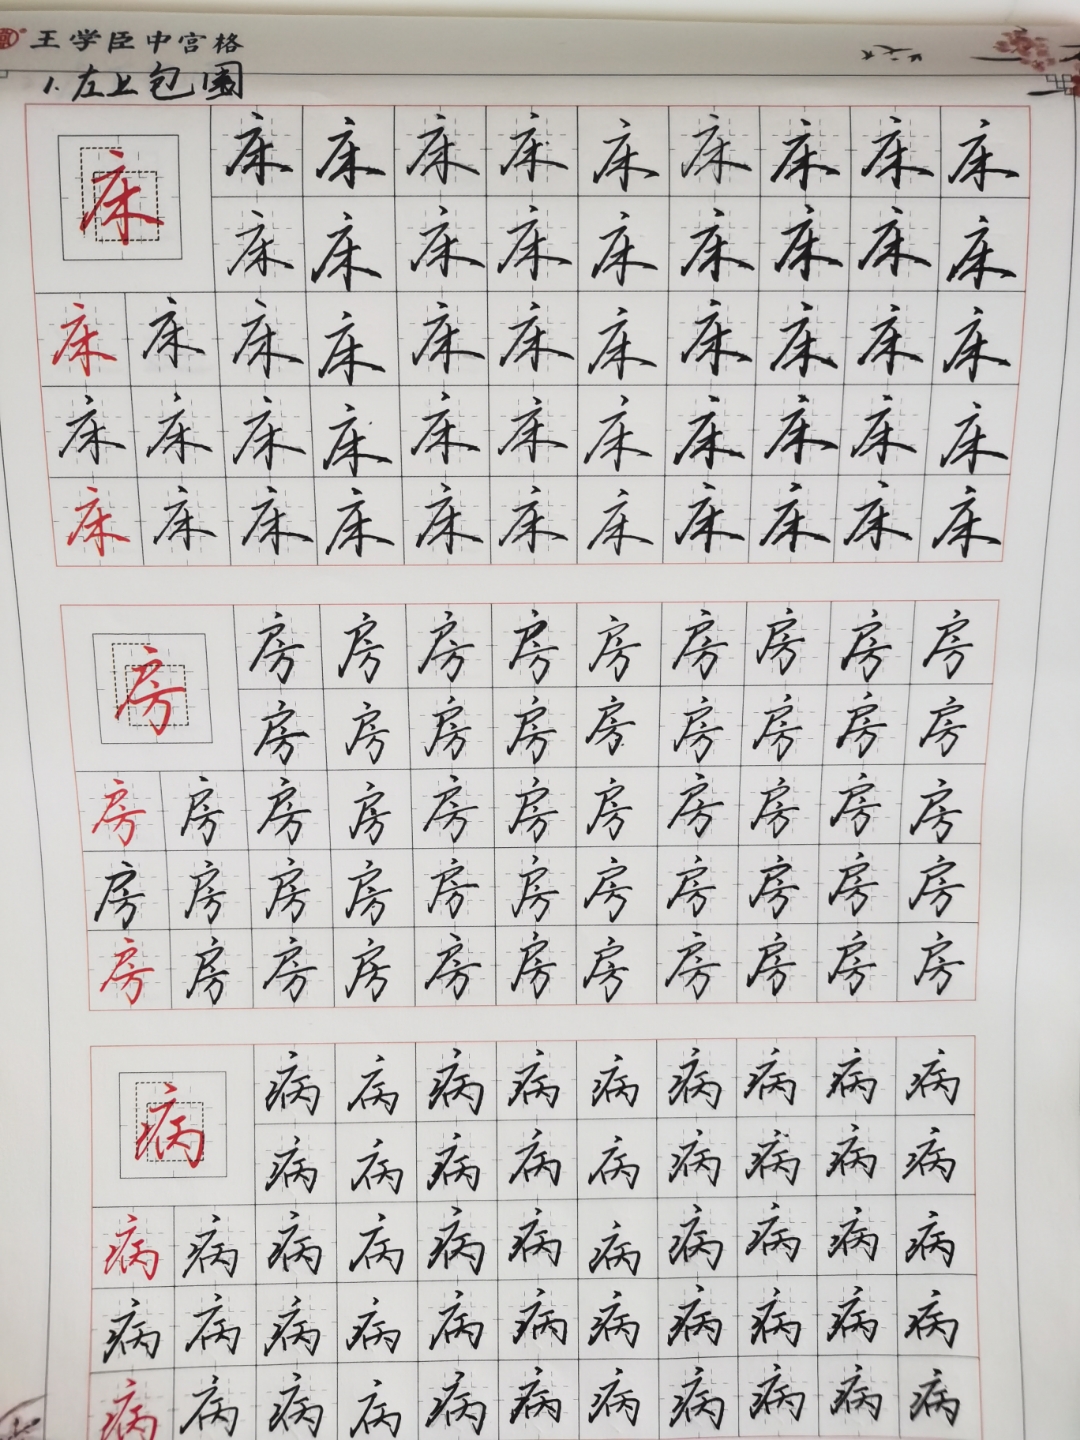 王学臣中宫格
1.左上包围
床床床床床床床床床床
床床床床床床床床床
床床床床床床床床床床床
床床床床床床床床床床床
床床床床床床床床床床床
房房房房房房房房房房
房房房房房房房房房
房房房房房房房房房房房
房房房房房房房房房房房
房房房房房房房房房房房
病病病病病病病病病病
病病病病病病病病病
病病病病病病病病病病病
病病病病病病病病病病病
病病病病病病病病病病病